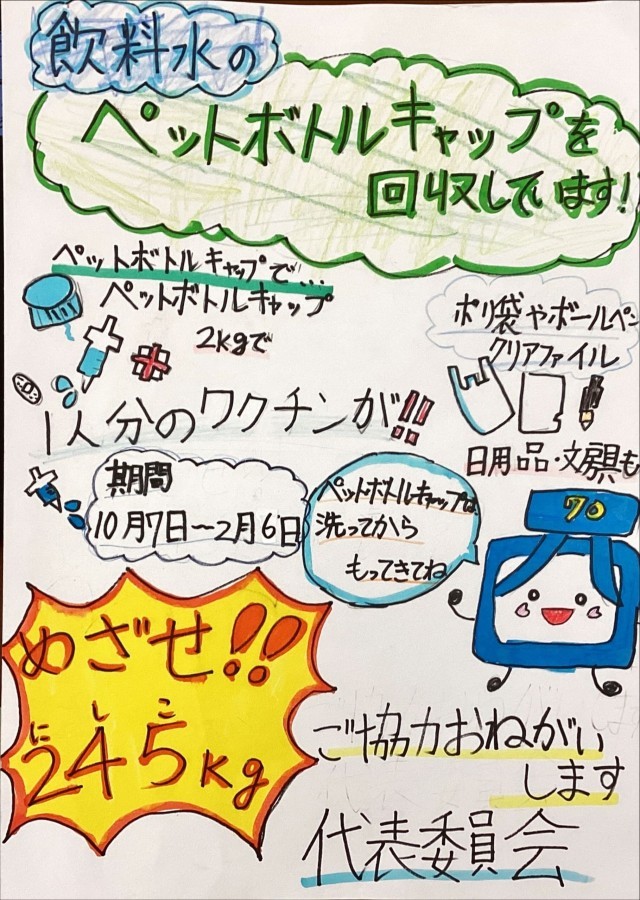 飲料水の
ペットボトルキャップを
回収しています!
ペットボトルキャップで...
ペットボトルキャップ
2kgで
1人分のワクチンが!!
ポリ袋やボールペン
クリアファイル
日用品・文房具も
期間
10月7日〜2月6日
ペットボトルキャップは
洗ってから
もってきてね
70
めざせ!!
にしこ
245kg
ご協力おねがい
します
代表委員会